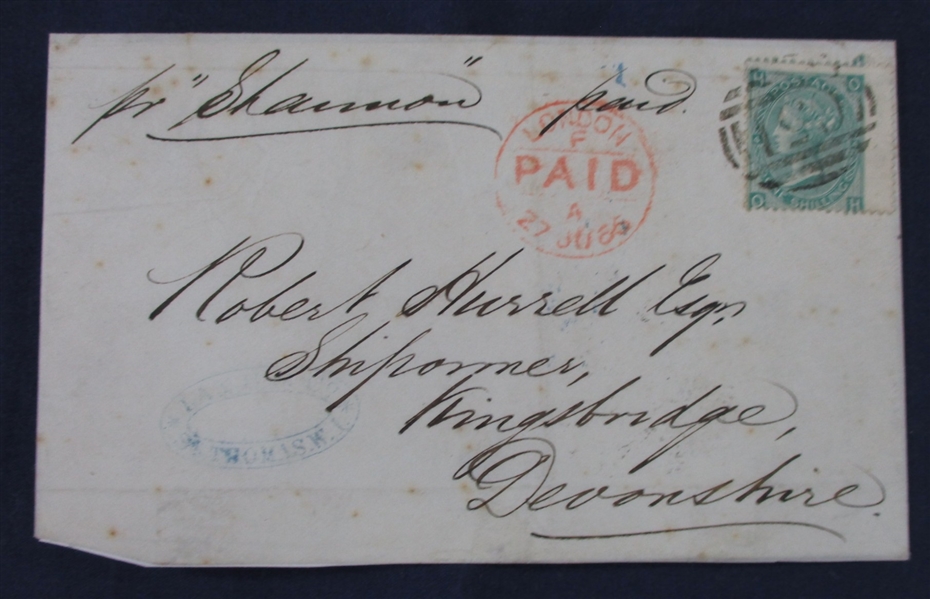 pr "Shannon" paid.
LONDON
F
PAID
A
27 JU
Robert Hurrell Esqr,
Shipowner,
Kingsbridge,
Devonshire.
THOMAS. W. I.
H O
SHILLING
O H